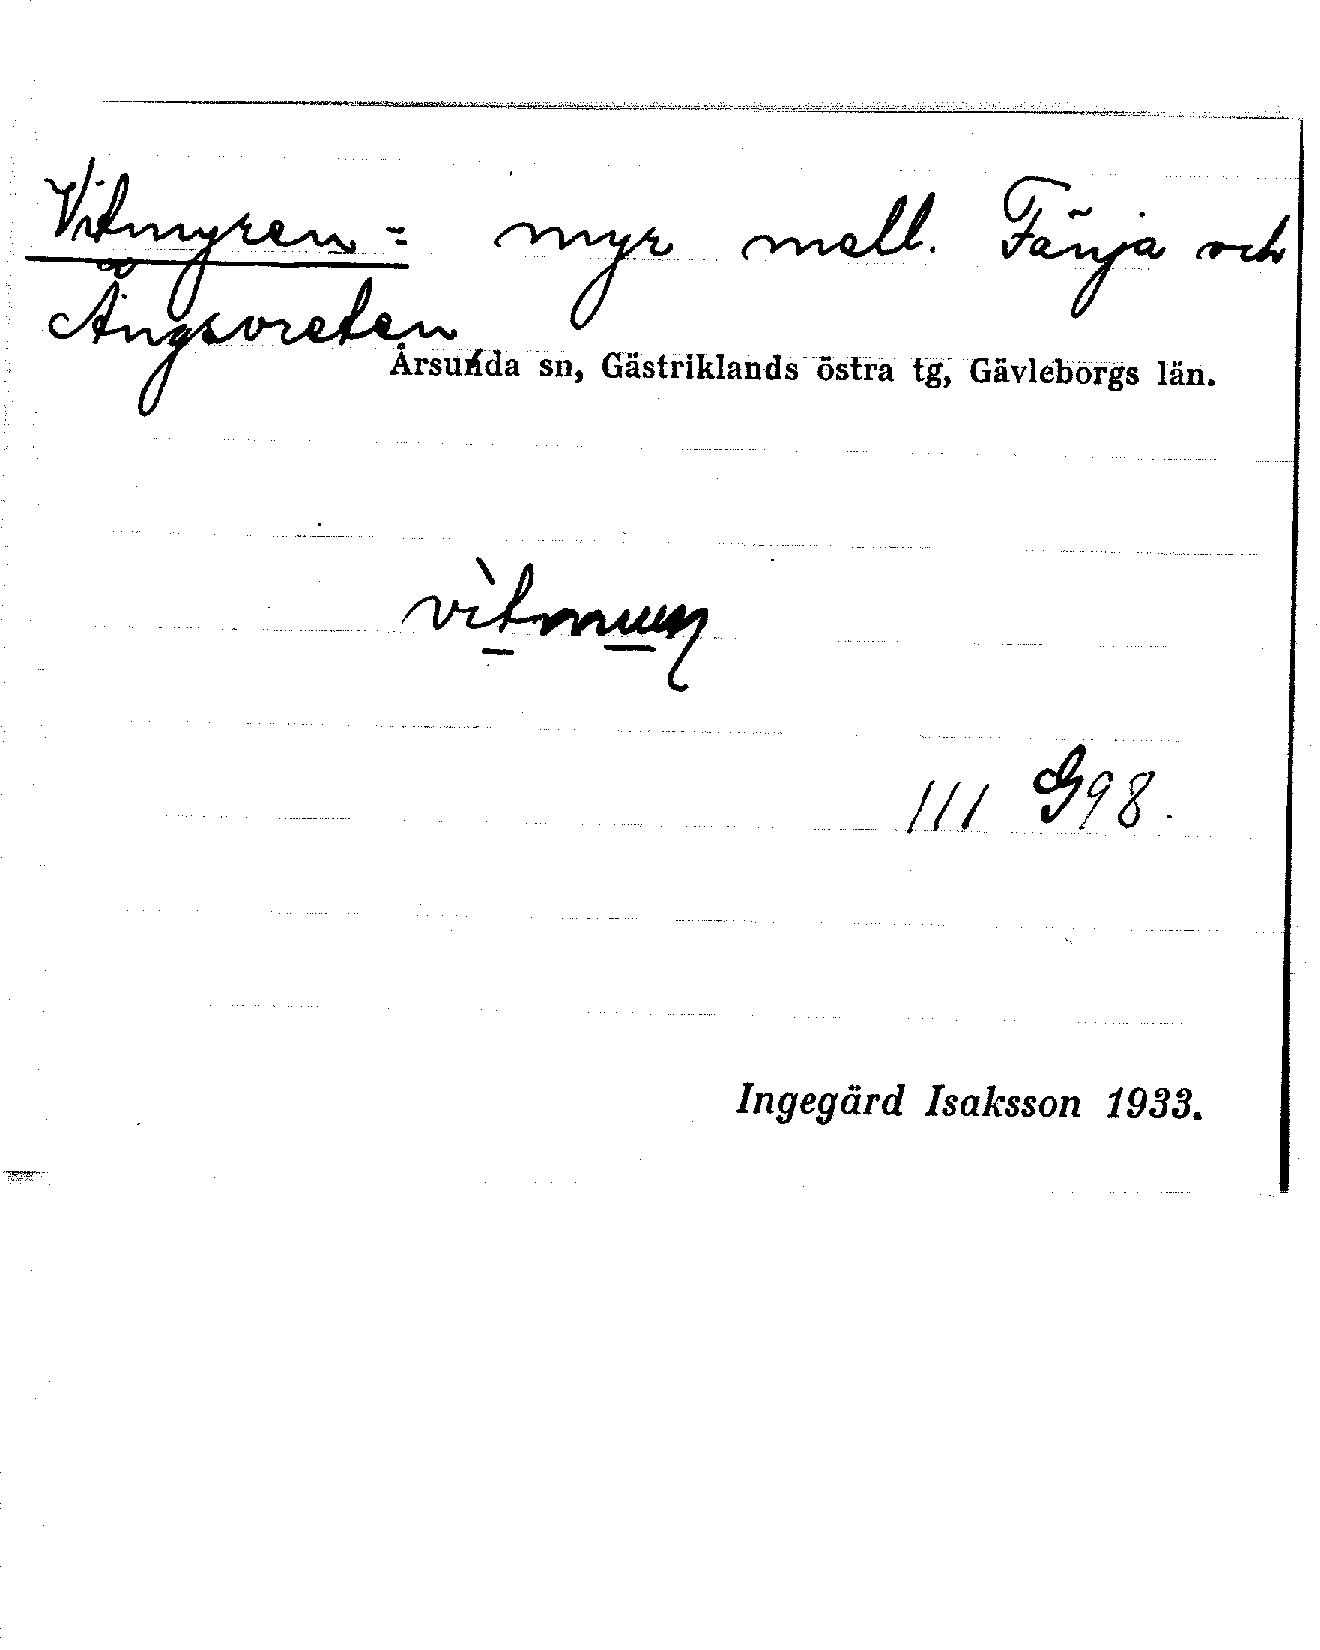 Vitmyren = myr mell. Fänja och
Ängsvreten
Årsunda sn, Gästriklands östra tg, Gävleborgs län.
111 G98.
Ingegärd Isaksson 1933.